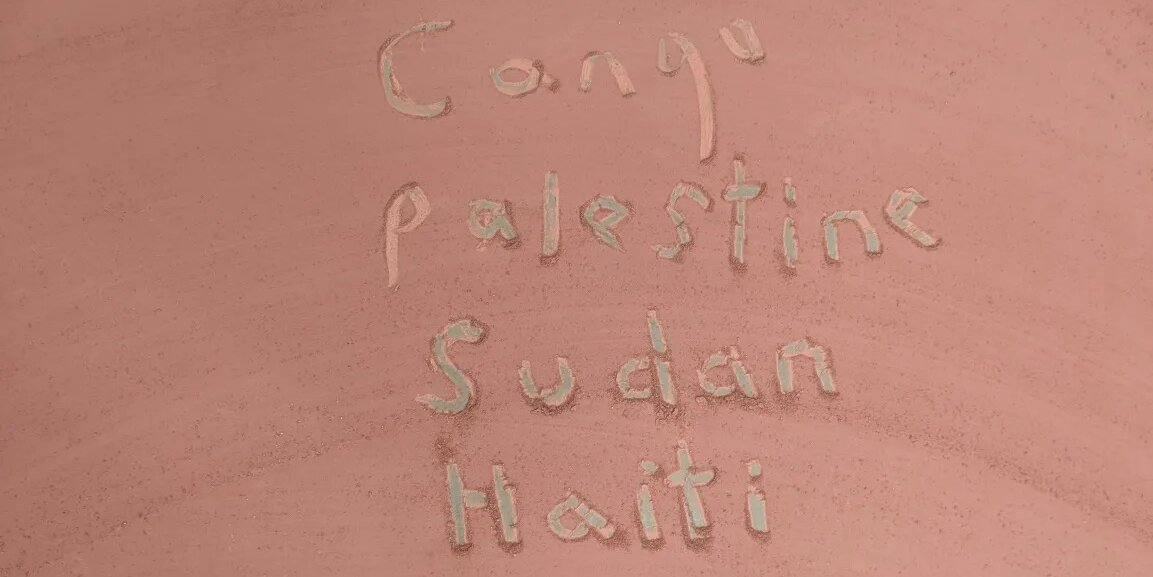 Congo
Palestine
Sudan
Haiti